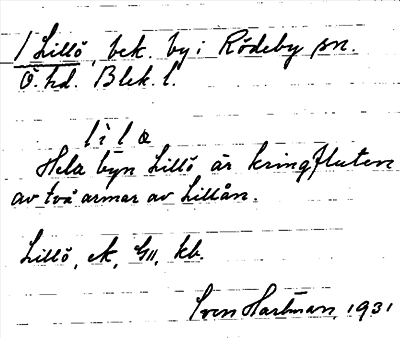 Lillö, bek. by i Rödeby sn.
Ö. hd. Blek. l.
lìlø
Hela byn Lillö är kringfluten
av två armar av Lillån.
Lillö, ek, G11, kb.
Sven Hartman, 1931